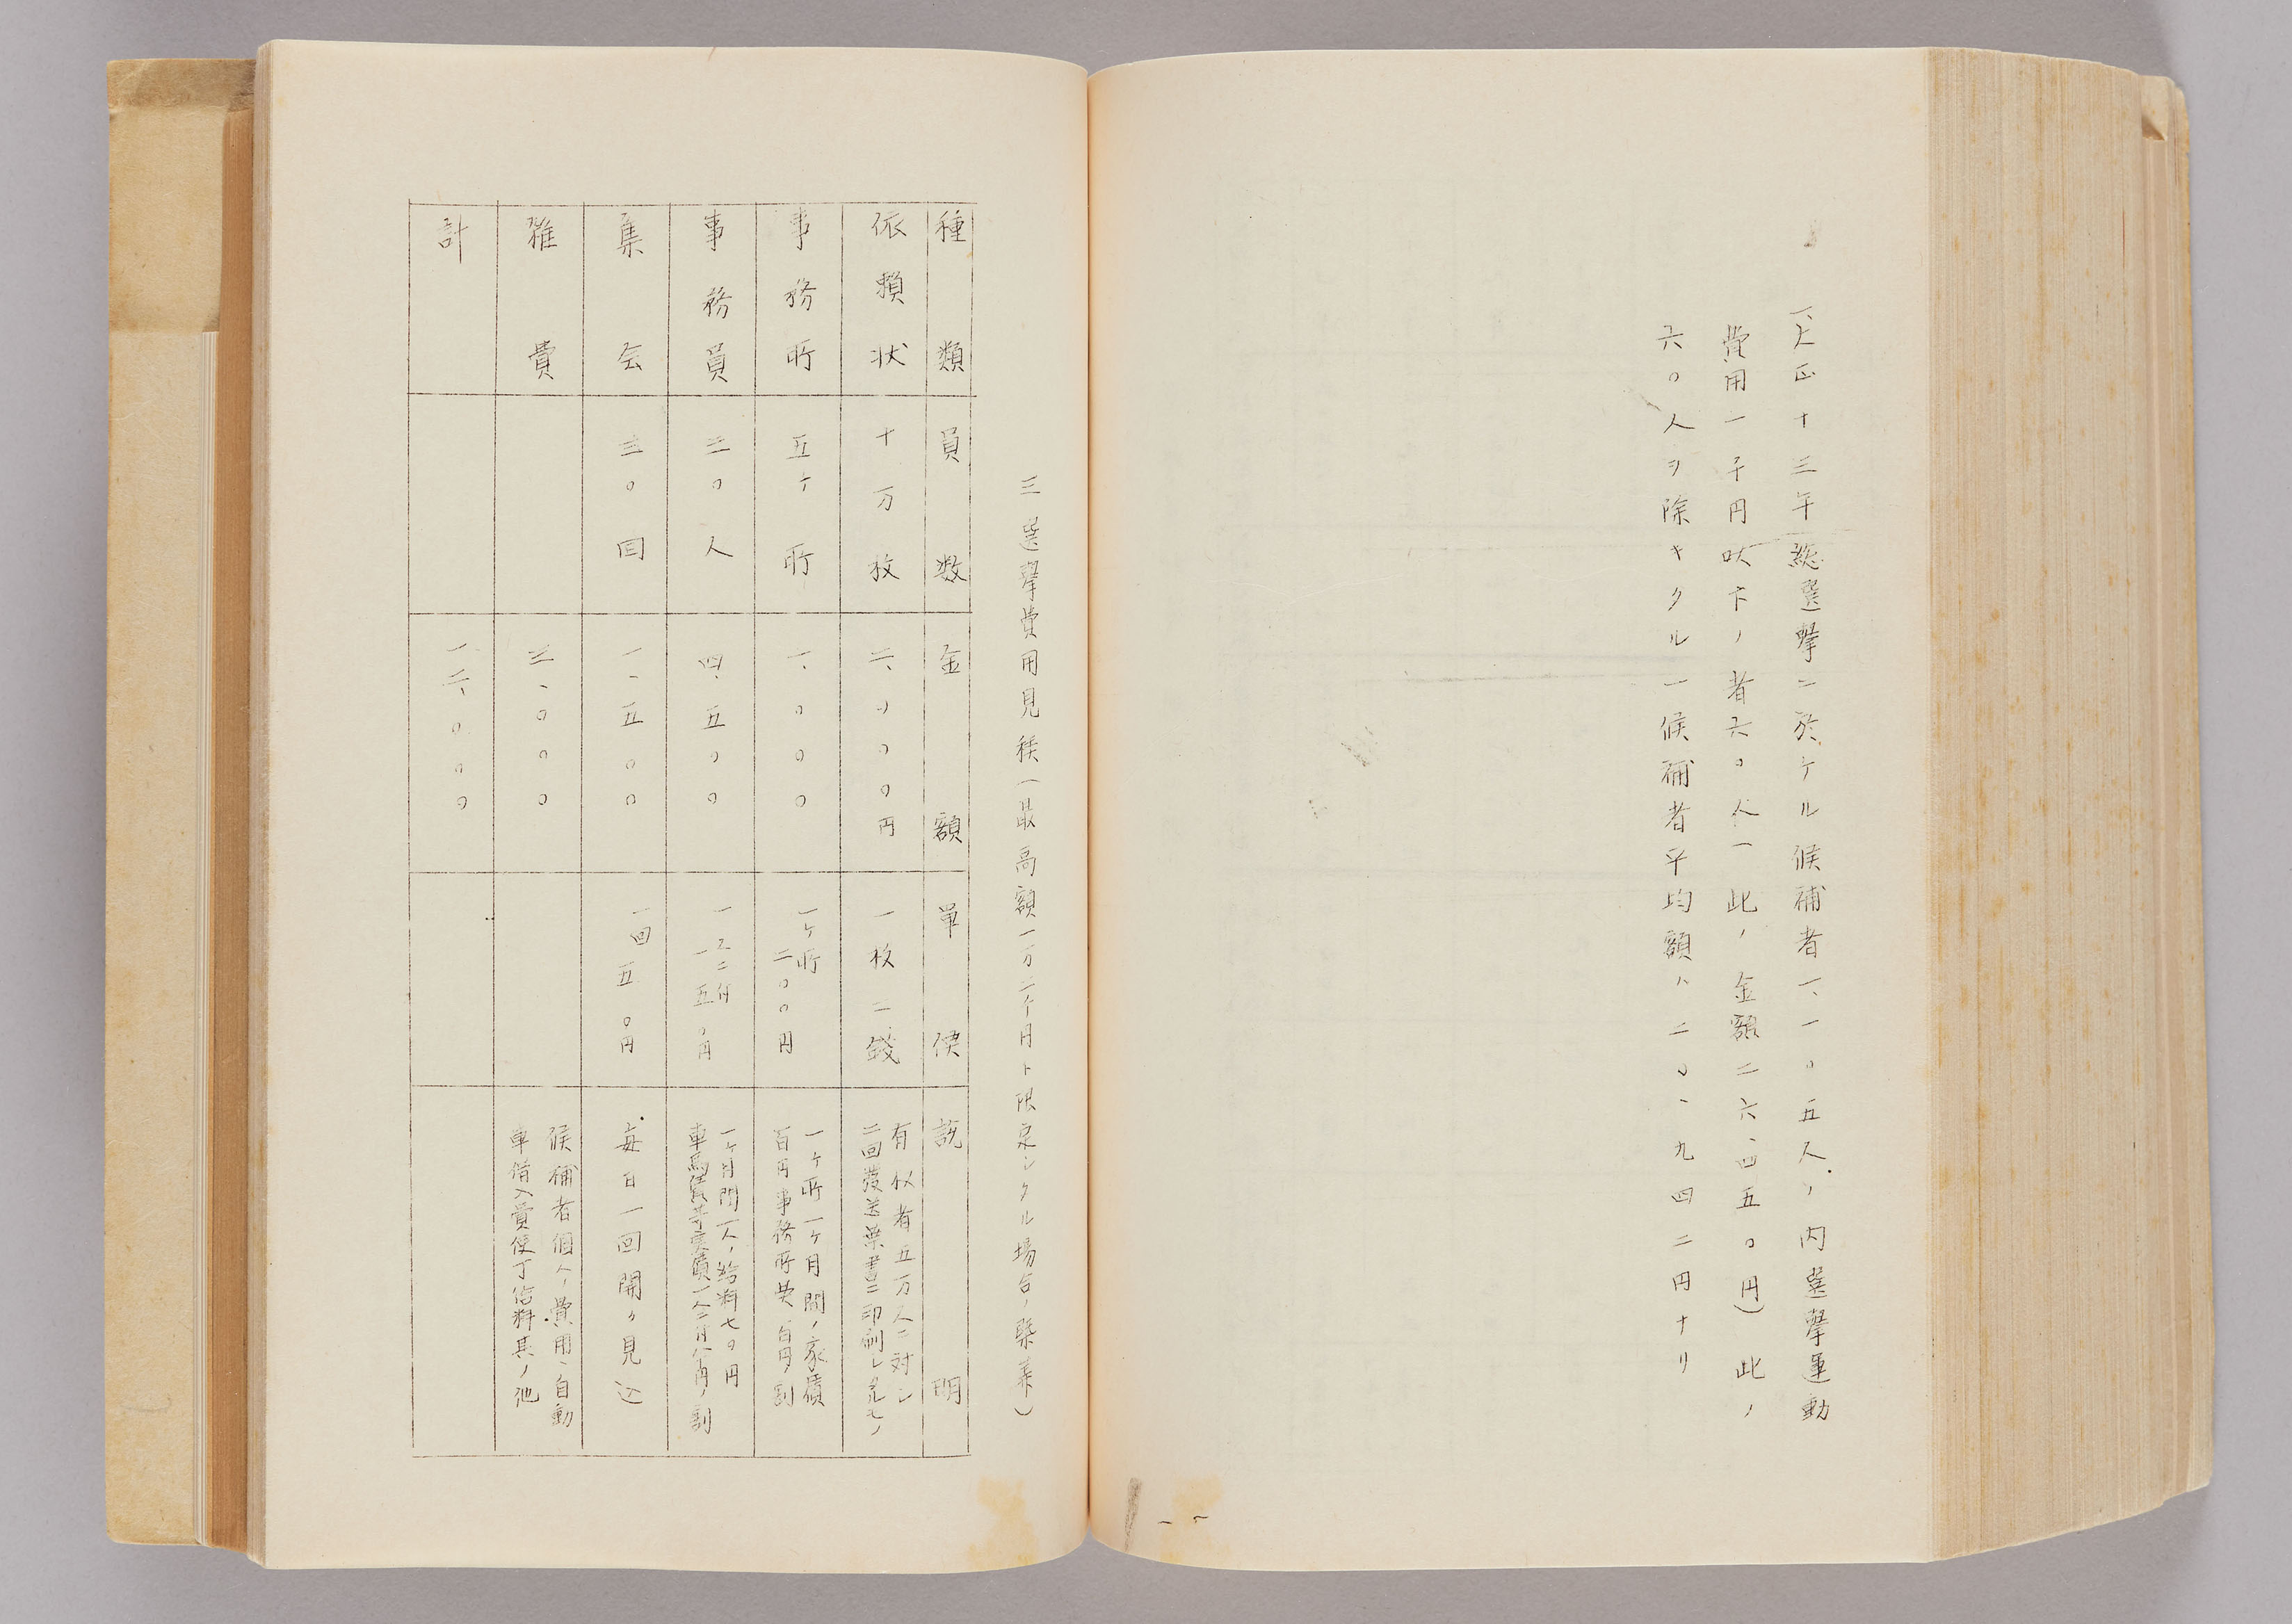 一、大正十三年総選挙ニ於ケル候補者一、一〇五人ノ内選挙運動
費用一千円以下ノ者六〇人(此ノ金額二六、四五〇円)此ノ
六〇人ヲ除キタル一候補者平均額ハ二〇、九四二円ナリ
三 選挙費用見積(最高額一万二千円ト限定シタル場合ノ概算)
種類 員数 金額 単価 説明
依頼状 十万枚 二、〇〇〇円 一枚二銭
有权者五万人ニ対シ
二回発送葉書ニ印刷シタルモノ
事務所 五ケ所 一、〇〇〇
一ケ所
二〇〇円
一ケ所一ケ月間ノ家賃
百円事務所費百円ノ割
事務員 三〇人 四、五〇〇
一人ニ付
一五〇円
一ケ月間一人ノ給料七〇円
車馬賃等実費一人ニ付八〇円ノ割
集会 三〇回 一、五〇〇 一回五〇円 毎日一回開ク見込
雑費 三、〇〇〇
候補者個人ノ費用、自動
車借入費使丁給料其ノ他
計 一二、〇〇〇